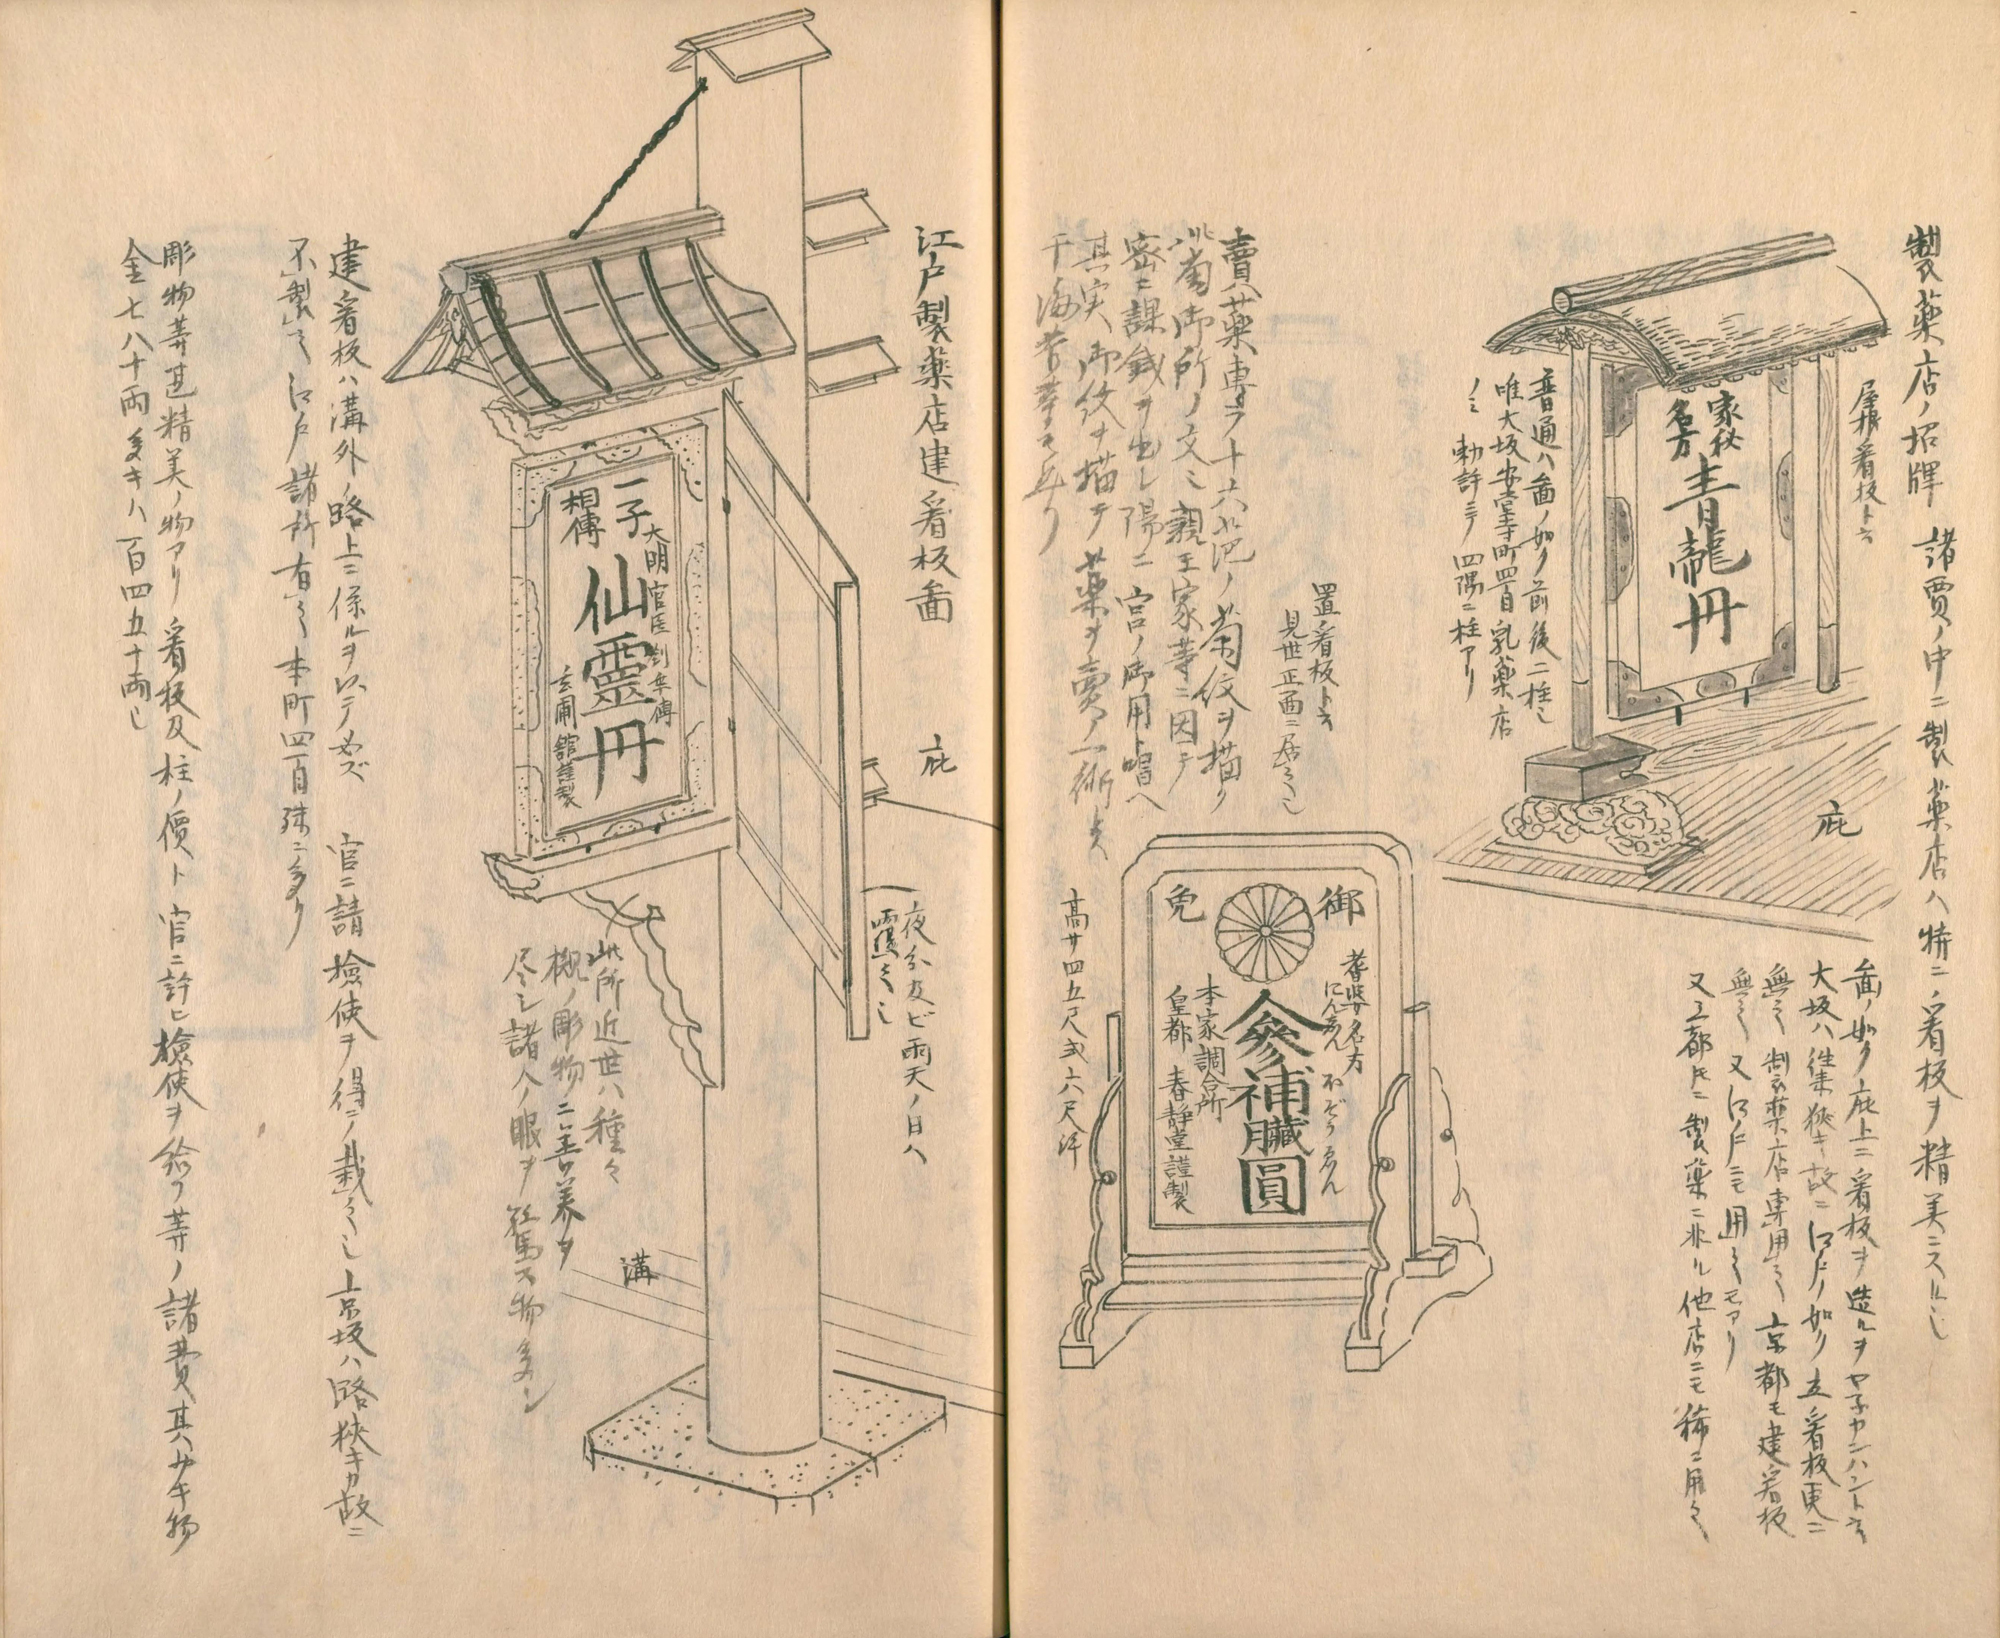 製薬店ノ招牌 諸賈ノ中ニ製薬店ハ特ニ看板ヲ精美ニスル也
屋根看板ト云
家秘
名方
青龍丹
普通ハ圖ノ如ク前後二柱也
唯大坂安堂寺町四丁目乳薬店
ノミ勅許ニテ四隅ニ柱アリ
庇
圖ノ如ク庇上ニ看板ヲ造ルヲヤ子カンハント云
大坂ハ往来狭キ故ニ江戸ノ如ク立看板更ニ
無之製薬店専用之京都モ建看板
無之又江戸ニモ用之モアリ
又三都トモニ製薬ニ非ル他店ニモ稀ニ用之
置看板ト云
見世正面ニ居之也
賣薬専ラ十六葩ノ菊紋ヲ描ク
此菊御所ノ文也親王家等ニ因テ
密ニ課銭ヲ出シ陽ニ宮ノ御用ト唱ヘ
其実御紋ヲ描テ其薬ヲ賣ノ一術ト云
高サ四五尺或六尺許
御
免
耆婆名方
にんじん
ほぞうゑん
人參補臓圓
本家調合所
皇都 春静堂謹製
江戸製薬店建看板圖
庇
夜分及ビ雨天ノ日ハ
覆之也
一子
相傳
大明官医
仙靈丹
玄圃館謹製
此所近世ハ種々
槻ノ彫物ニ善美ヲ
尽シ諸人ノ眼ヲ驚ス物多シ
溝
建看板ハ溝外ノ路上ニ係ルヲ以テ必ズ 官ニ請検使ヲ得テ栽之也京坂ハ路狭キカ故ニ
不製之江戸諸所有之本町四丁目殊ニ多リ
彫物等甚精美ノ物アリ看板及柱ノ價ト官ニ許ヒ検使ヲ給フ等ノ諸費其少キ物
金七八十両多キハ百四五十両也